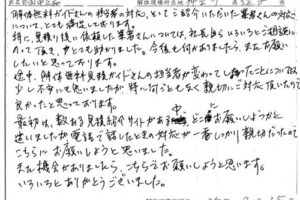 解体無料ガイドさんの担当者の対応、そしてご紹介いただいた業者さんの対応
についてとても満足しております。
特に、見積り後に依頼した業者さんについては、社長さんもいろいろご相談に
のって頂き、とても助かりました。今後も何かありましたら、またお願い
したいと思っております。
途中、解体無料見積ガイドさんの担当者が変わってしまったことについては
少し不安にも思いましたが特に何ごともなく親切にご対応頂いたので
良かったと思っております。
最初は、数ある見積紹介サイトがある中、どこにお願いしようかと
迷いましたが電話で話したときの対応が一番しっかり親切だったので
こちらにお願いしようと思いました。
また機会がありましたら、こちらでお願いしようと思います。
いろいろとありがとうございました。